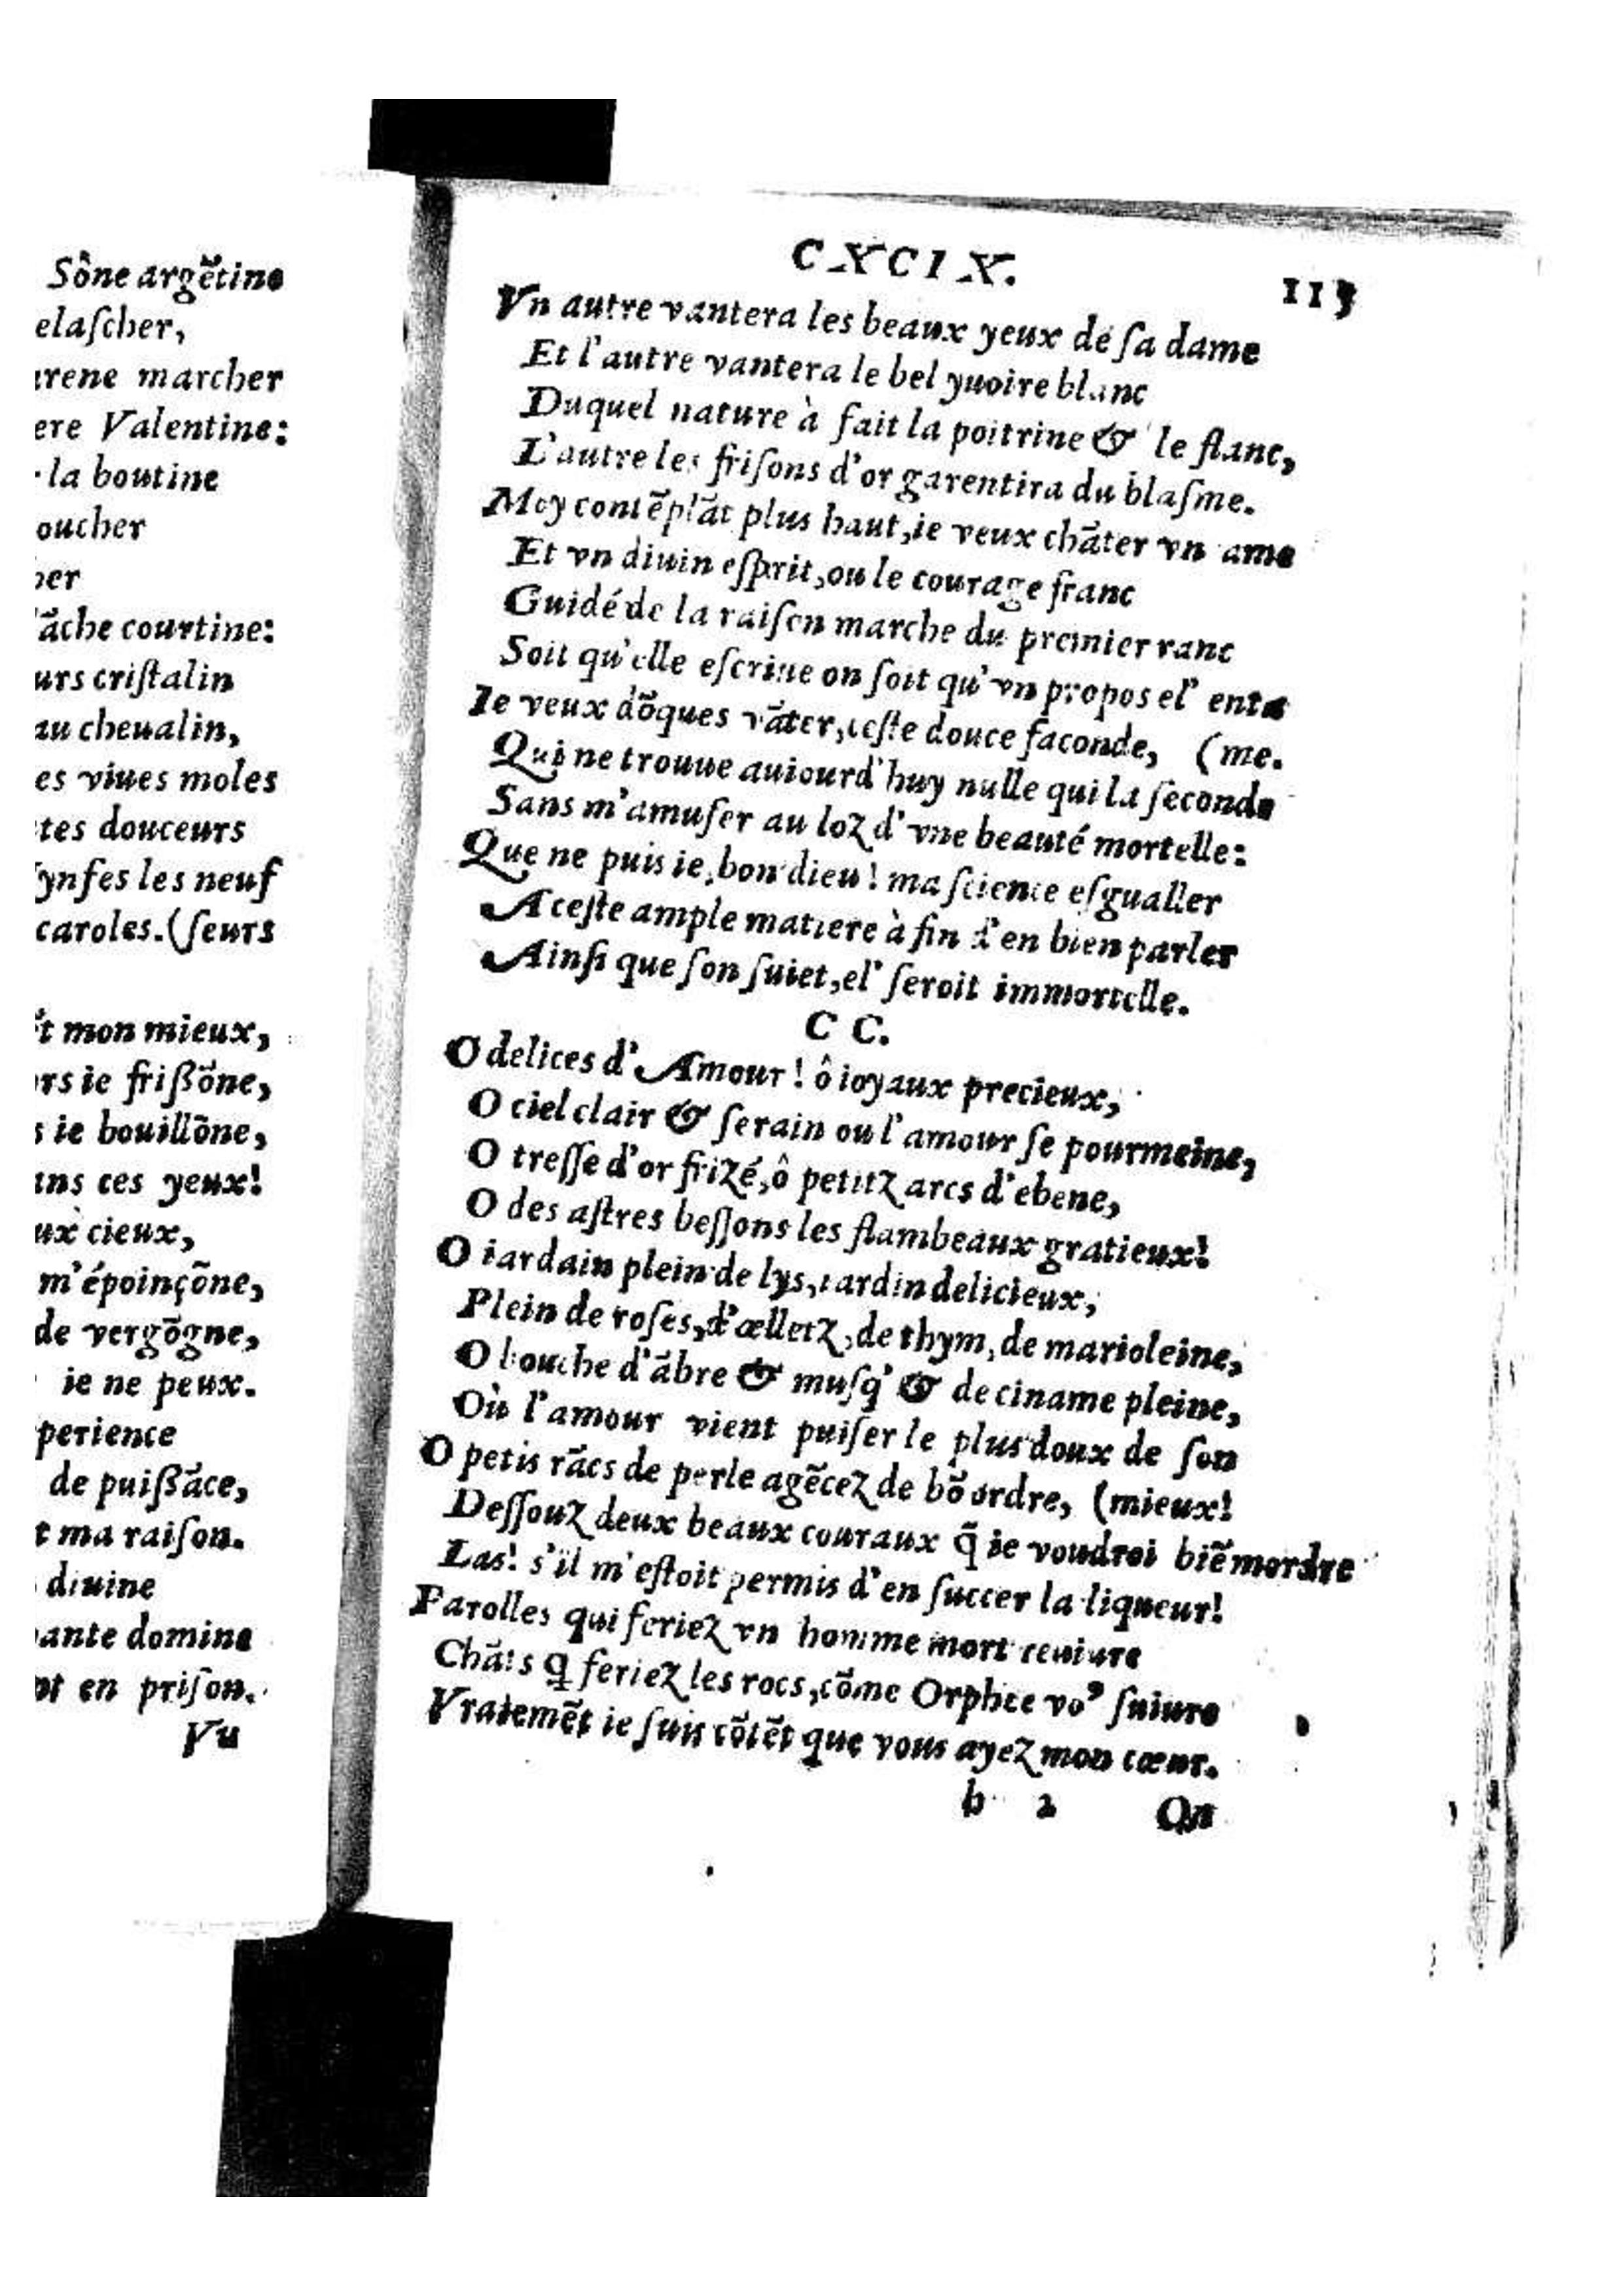 Sône argẽtine
elaſcher,
rene marcher
ere Valentine:
la boutine
oucher
her
ãche courtine:
urs criſtalin
au cheualin,
es viues moles
tes douceurs
ynfes les neuf
caroles. (ſeurs
t mon mieux,
rs ie frißõne,
s ie bouillõne,
ans ces yeux!
ux cieux,
m'époinçõne,
de vergõgne,
ie ne peux.
perience
de puißãce,
t ma raiſon.
diuine
ante domine
nt en priſon.
Vu
CXCIX.
113
Vn autre vantera les beaux yeux de ſa dame
Et l'autre vantera le bel yuoire blanc
Duquel nature à fait la poitrine & le flanc,
L'autre les friſons d'or garentira du blaſme.
Moy contẽplãt plus haut, ie veux chãter vn ame
Et vn diuin eſprit, ou le courage franc
Guidé de la raiſon marche du premier ranc
Soit qu'elle eſcriue ou ſoit qu'vn propos el' enta
Ie veux dõques vãter, ceſte douce faconde, (me.
Qui ne trouue auiourd'huy nulle qui la ſeconde
Sans m'amuſer au loz d'vne beauté mortelle:
Que ne puis ie, bon dieu! ma ſcience eſgualler
A ceſte ample matiere à fin d'en bien parler
Ainſi que ſon ſuiet, el' ſeroit immortelle.
CC.
O delices d'Amour! ô ioyaux precieux,
O ciel clair & ſerain ou l'amour ſe pourmeine,
O treſſe d'or frizé, ô petitz arcs d'ebene,
O des aſtres beſſons les flambeaux gratieux!
O iardain plein de lys, iardin delicieux,
Plein de roſes, d'œlletz, de thym, de marioleine,
O bouche d'ãbre & muſq' & de ciname pleine,
Où l'amour vient puiſer le plus doux de ſon
O petis rãcs de perle agẽcez de bõ ordre, (mieux!
Deſſouz deux beaux couraux q̃ ie voudroi biẽ mordre
Las! s'il m'eſtoit permis d'en ſuccer la liqueur!
Parolles qui feriez vn homme mort reuiure
Chãts q feriez les rocs, cõme Orphee voꝰ ſuiure
Vraiemẽt ie ſuis cõtẽt que vous ayez mon cœur.
b 2 On